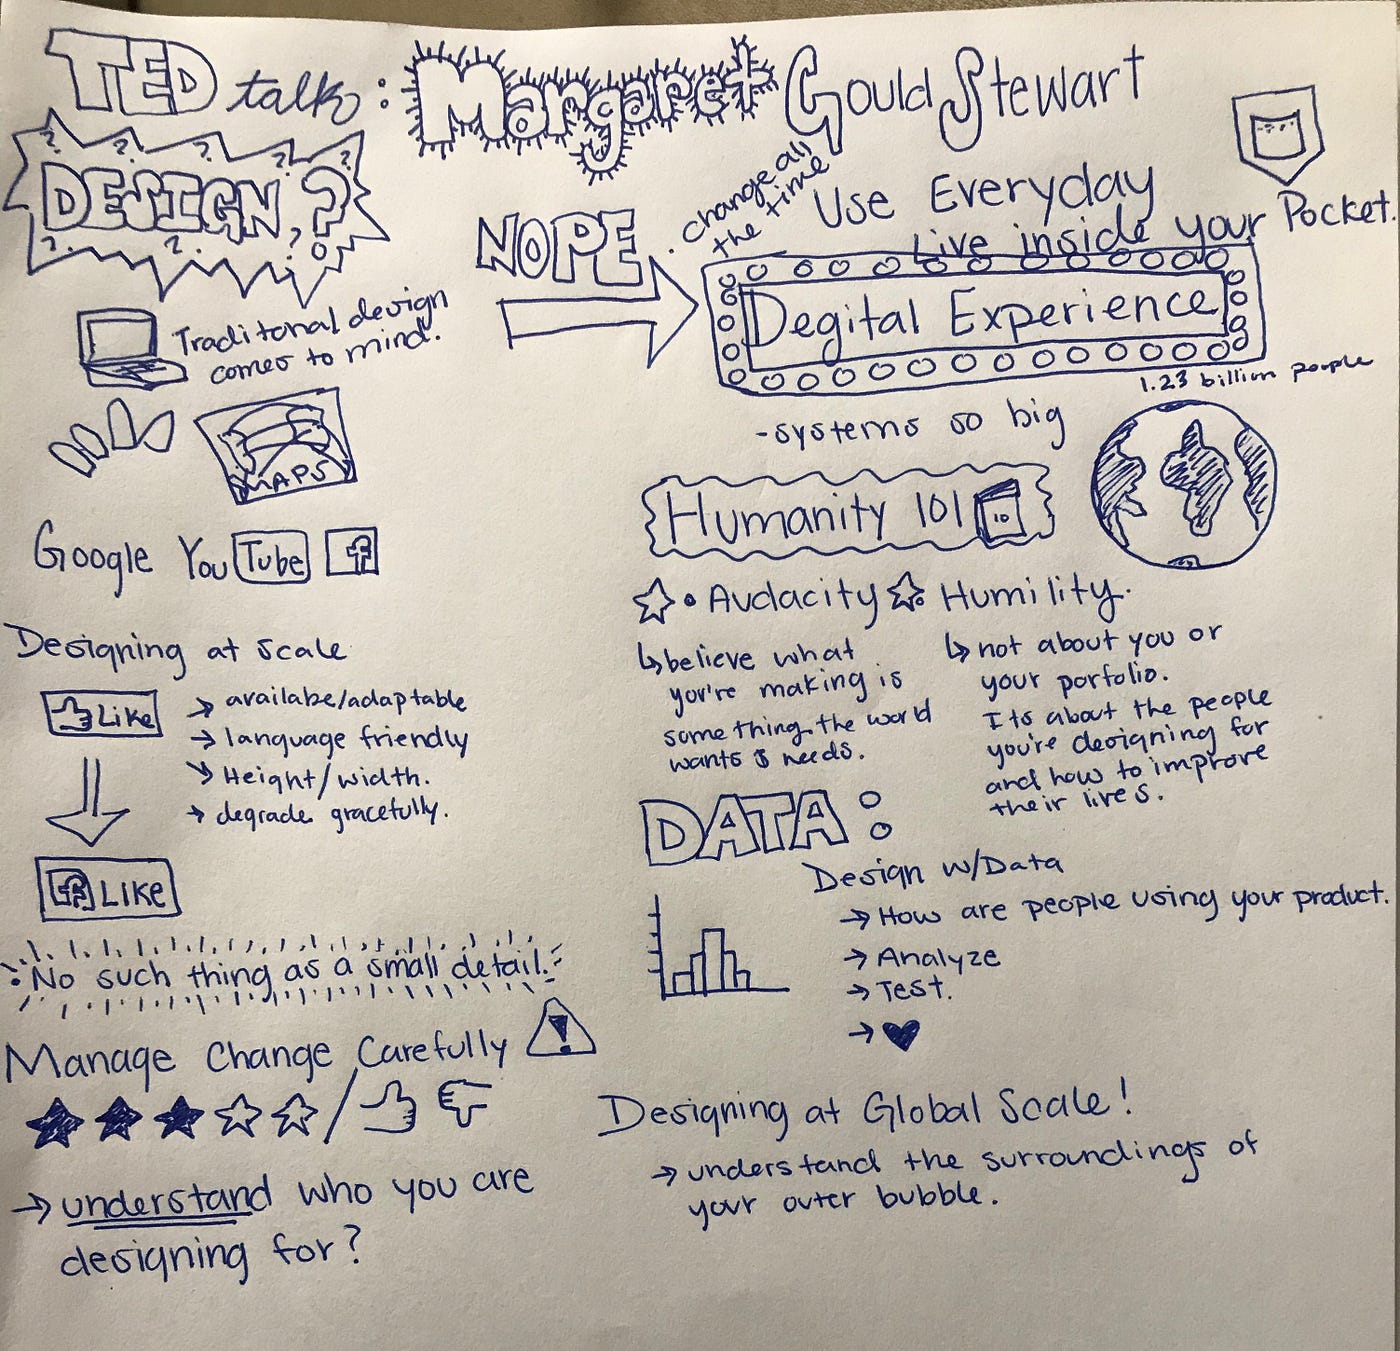 TED talk: Margaret Gould Stewart
DESIGN, ?
? ? ? ? ?
? ? ?
Traditonal design
comes to mind.
MAPS
Google YouTube f
Designing at scale
Like
→ availabe/adaptable
→ language friendly
→ Height/width.
→ degrade gracefully.
f LIKE
No such thing as a small detail.
Manage Change Carefully !
/
→ understand who you are
designing for?
NOPE
change all
the time
Use Everyday
Live inside your Pocket.
Degital Experience
1.23 billion people
-systems so big
Humanity 101
• Audacity
↳ believe what
you're making is
something the world
wants & needs.
Humility.
↳ not about you or
your porfolio.
Its about the people
you're designing for
and how to improve
their lives.
DATA:
Design w/Data
→ How are people using your product.
→ Analyze
→ Test.
→ ♥
Designing at Global Scale!
→ understand the surroundings of
your outer bubble.